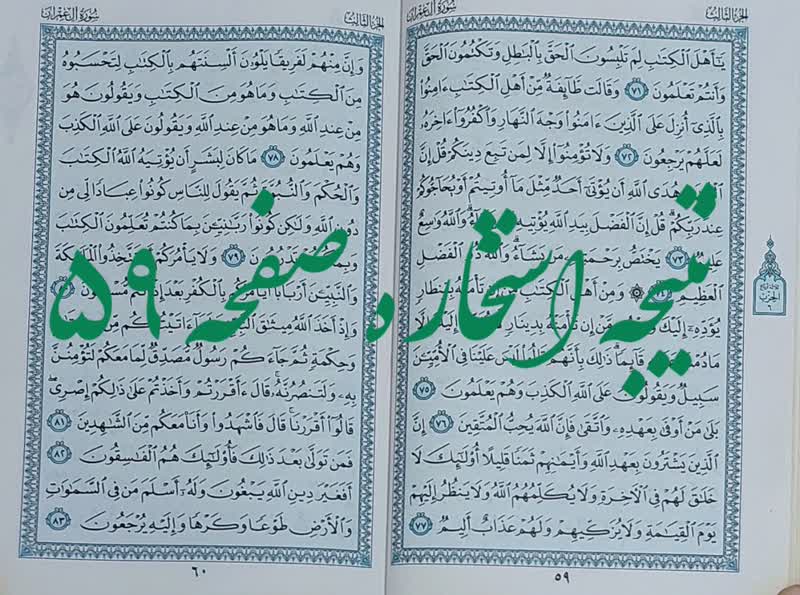 سُورَةُ آلِ عِمْرَانَ
الجُزءُ الثَّالِثُ
يَٰٓأَهْلَ ٱلْكِتَٰبِ لِمَ تَلْبِسُونَ ٱلْحَقَّ بِٱلْبَٰطِلِ وَتَكْتُمُونَ ٱلْحَقَّ
وَأَنتُمْ تَعْلَمُونَ ٧١ وَقَالَت طَّآئِفَةٌ مِّنْ أَهْلِ ٱلْكِتَٰبِ ءَامِنُوا۟
بِٱلَّذِىٓ أُنزِلَ عَلَى ٱلَّذِينَ ءَامَنُوا۟ وَجْهَ ٱلنَّهَارِ وَٱكْفُرُوٓا۟ ءَاخِرَهُۥ
لَعَلَّهُمْ يَرْجِعُونَ ٧٢ وَلَا تُؤْمِنُوٓا۟ إِلَّا لِمَن تَبِعَ دِينَكُمْ قُلْ إِنَّ
هُدَى ٱللَّهِ أَن يُؤْتَىٰٓ أَحَدٌ مِّثْلَ مَآ أُوتِيتُمْ أَوْ يُحَآجُّوكُمْ
عِندَ رَبِّكُمْ قُلْ إِنَّ ٱلْفَضْلَ بِيَدِ ٱللَّهِ يُؤْتِيهِ وَٱللَّهُ وَٰسِعٌ
عَلِيمٌ ٧٣ يَخْتَصُّ بِرَحْمَتِهِۦ مَن يَشَآءُ وَٱللَّهُ ذُو ٱلْفَضْلِ
ٱلْعَظِيمِ ۞ وَمِنْ أَهْلِ ٱلْكِتَٰبِ تَأْمَنْهُ بِقِنطَارٍ
يُؤَدِّهِۦٓ إِلَيْكَ مَّنْ إِن تَأْمَنْهُ بِدِينَارٍ
قَآئِمًا ذَٰلِكَ بِأَنَّهُمْ قَالُوا۟ لَيْسَ عَلَيْنَا فِى ٱلْأُمِّيِّۦنَ
سَبِيلٌ وَيَقُولُونَ عَلَى ٱللَّهِ ٱلْكَذِبَ وَهُمْ يَعْلَمُونَ ٧٥
بَلَىٰ مَنْ أَوْفَىٰ بِعَهْدِهِۦ وَٱتَّقَىٰ فَإِنَّ ٱللَّهَ يُحِبُّ ٱلْمُتَّقِينَ ٧٦ إِنَّ
ٱلَّذِينَ يَشْتَرُونَ بِعَهْدِ ٱللَّهِ وَأَيْمَٰنِهِمْ ثَمَنًا قَلِيلًا أُو۟لَٰٓئِكَ لَا
خَلَٰقَ لَهُمْ فِى ٱلْـَٔاخِرَةِ وَلَا يُكَلِّمُهُمُ ٱللَّهُ وَلَا يَنظُرُ إِلَيْهِمْ
يَوْمَ ٱلْقِيَٰمَةِ وَلَا يُزَكِّيهِمْ وَلَهُمْ عَذَابٌ أَلِيمٌ ٧٧
٥٩
سُورَةُ آلِ عِمْرَانَ
الجُزءُ الثَّالِثُ
وَإِنَّ مِنْهُمْ لَفَرِيقًا يَلْوُۥنَ أَلْسِنَتَهُم بِٱلْكِتَٰبِ لِتَحْسَبُوهُ
مِنَ ٱلْكِتَٰبِ وَمَا هُوَ مِنَ ٱلْكِتَٰبِ وَيَقُولُونَ هُوَ
مِنْ عِندِ ٱللَّهِ وَمَا هُوَ مِنْ عِندِ ٱللَّهِ وَيَقُولُونَ عَلَى ٱللَّهِ ٱلْكَذِبَ
وَهُمْ يَعْلَمُونَ ٧٨ مَا كَانَ لِبَشَرٍ أَن يُؤْتِيَهُ ٱللَّهُ ٱلْكِتَٰبَ
وَٱلْحُكْمَ وَٱلنُّبُوَّةَ ثُمَّ يَقُولَ لِلنَّاسِ كُونُوا۟ عِبَادًا لِّى مِن
دُونِ ٱللَّهِ وَلَٰكِن كُونُوا۟ رَبَّٰنِيِّۦنَ بِمَا كُنتُمْ تُعَلِّمُونَ ٱلْكِتَٰبَ
وَبِمَا تَدْرُسُونَ ٧٩ وَلَا يَأْمُرَكُمْ أَن تَتَّخِذُوا۟ ٱلْمَلَٰٓئِكَةَ
وَٱلنَّبِيِّۦنَ أَرْبَابًا أَيَأْمُرُكُم بِٱلْكُفْرِ بَعْدَ إِذْ أَنتُم مُّسْلِمُونَ
وَإِذْ أَخَذَ ٱللَّهُ مِيثَٰقَ ءَاتَيْتُكُم مِّن
وَحِكْمَةٍ ثُمَّ جَآءَكُمْ رَسُولٌ مُّصَدِّقٌ لِّمَا مَعَكُمْ لَتُؤْمِنُنَّ
بِهِۦ وَلَتَنصُرُنَّهُۥ قَالَ ءَأَقْرَرْتُمْ وَأَخَذْتُمْ عَلَىٰ ذَٰلِكُمْ إِصْرِى
قَالُوٓا۟ أَقْرَرْنَا قَالَ فَٱشْهَدُوا۟ وَأَنَا۠ مَعَكُم مِّنَ ٱلشَّٰهِدِينَ ٨١
فَمَن تَوَلَّىٰ بَعْدَ ذَٰلِكَ فَأُو۟لَٰٓئِكَ هُمُ ٱلْفَٰسِقُونَ ٨٢
أَفَغَيْرَ دِينِ ٱللَّهِ يَبْغُونَ وَلَهُۥٓ أَسْلَمَ مَن فِى ٱلسَّمَٰوَٰتِ
وَٱلْأَرْضِ طَوْعًا وَكَرْهًا وَإِلَيْهِ يُرْجَعُونَ ٨٣
٦٠
نتیجه استخاره صفحه ۵۹